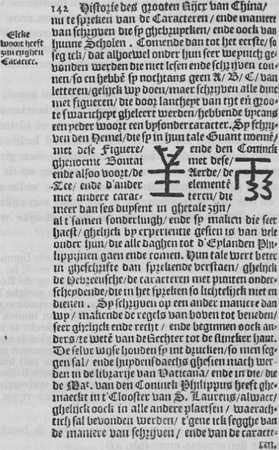 142 Historie des grooten Rijcx van China/
nu te spreken van de Caracteren/ ende maniere
van schrijven die sy ghebruycken/ ende oock van
hunne Scholen. Comende dan tot het eerste/ so
seg ick/ dat alhoewel onder hun seer weynich ge-
vonden werden die niet lesen ende schrijven con-
nen/ so en hebbē sy nochtans geen A/ B/ C/ van
letteren/ gelijck wy doen/ maer schrijven alle dinc
met figueren/ die door lancheyt van tijt eñ groo-
te swaricheyt gheleert werden/ hebbende bycans
een yeder woort een bysonder caracter. Sy schrij-
ven den Hemel/ die sy in hun tale Guant
met dese Figuere
ende den Coninck
ghenoemt Bontai
met dese/
ende alsoo voort/ de
Aerde/ de
Zee/ ende d'ander
elementē
met andere carac-
teren/ die
meer dan ses duysent in ghetale zijn/
al t'samen sonderlingh/ ende sy maken die seer
haest/ ghelijck by experientie gesien is van vele
onder hun/ die alle daghen tot d'Eylanden Phi-
lippijnen gaen ende comen. Hun tale wert beter
in gheschrifte dan sprekende verstaen/ ghelijck
de Hebreusche/ de caracteren met puncten onder-
scheydende/ die in het spreken so luchtelijck niet en
dienen. Sy schrijven op een ander maniere dan
wy/ makende de regels van boven tot beneden/
seer ghelijck ende recht/ ende beginnen oock an-
ders/ te wetē van de Rechter tot de slincker hant.
De selve wijse houden sy int drucken/ so men seg-
gen sal/ ende huydensdaechs ghesien mach wer-
den in de librarye van Vaticana/ ende in die/ die
de Mat. van den Coninck Philippus heeft ghe-
maeckt in t'Clooster van S. Laurens/ alwaer/
ghelijck oock in alle andere plaetsen/ waerach-
tich sal bevonden werden/ t'gene ick segghe van
de maniere van schrijven/ ende van de caracte-
ren.
Elcke
woort heeft
zijn eyghen
Caracter.